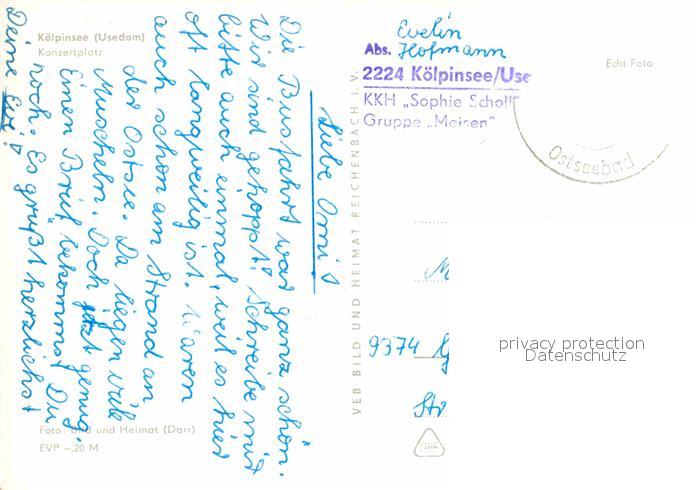 Kölpinsee (Usedom)
Konzertplatz
Liebe Omi!
Die Busfahrt war ganz schön.
Wir sind gehoppt! Schreibe mir
bitte auch einmal, weil es hier
oft langweilig ist. Waren
auch schon am Strand an
der Ostsee. Da liegen viele
Muscheln. Doch jetzt genug.
Einen Brief bekommst Du
noch. Es grüßt herzlichst
Deine Evi!
Foto: Bild und Heimat (Darr)
EVP -,20 M
VEB BILD UND HEIMAT REICHENBACH I. V.
Evelin
Abs. Hofmann
2224 Kölpinsee/Use
KKH „Sophie Scholl"
Gruppe „Meisen"
Echt Foto
Ostseebad
M
9374 G
Str
privacy protection
Datenschutz